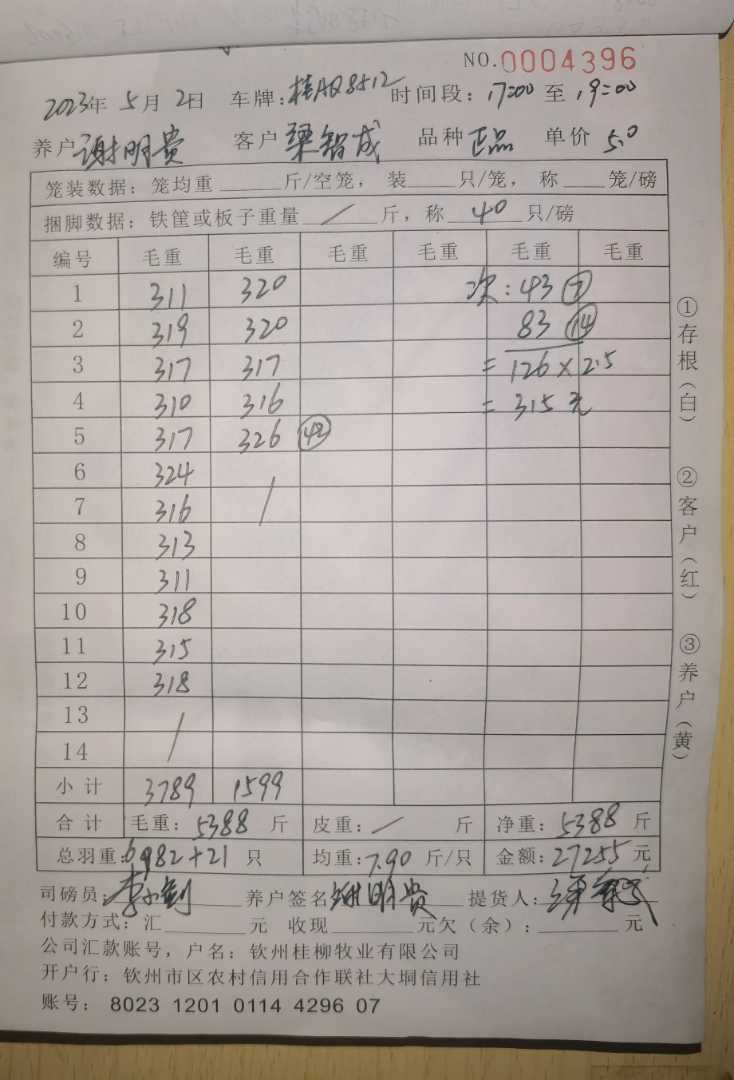 NO.0004396
2023年 5月 2日 车牌:桂AQ8512 时间段: 17:00 至 19:00
养户 谢明贵 客户 梁智成 品种 正品 单价 5.0
笼装数据: 笼均重 斤/空笼, 装 只/笼, 称 笼/磅
捆脚数据: 铁筐或板子重量 / 斤, 称 40 只/磅
编号 毛重 毛重 毛重 毛重 毛重 毛重
1 311 320 次: 43 ⑦
2 319 320 83 ⑭
3 317 317 = 126 × 2.5
4 310 316 = 315 元
5 317 326 ㊷
6 324
7 316 /
8 313
9 311
10 318
11 315
12 318
13 /
14
小计 3789 1599
合计 毛重: 5388 斤 皮重: / 斤 净重: 5388 斤
总羽重: 682+21 只 均重: 7.90 斤/只 金额: 27255 元
司磅员: 养户签名 谢明贵 提货人:
付款方式: 汇 元 收现 元欠(余): 元
公司汇款账号, 户名: 钦州桂柳牧业有限公司
开户行: 钦州市区农村信用合作联社大垌信用社
账号: 8023 1201 0114 4296 07
①存根(白) ②客户(红) ③养户(黄)